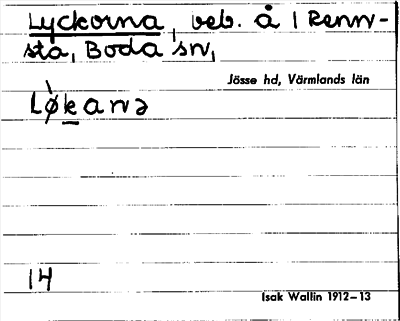 Lyckorna, beb. å 1 Renn-
sta, Boda sn,
Jösse hd, Värmlands län
Lø̀kanə
14
Isak Wallin 1912–13